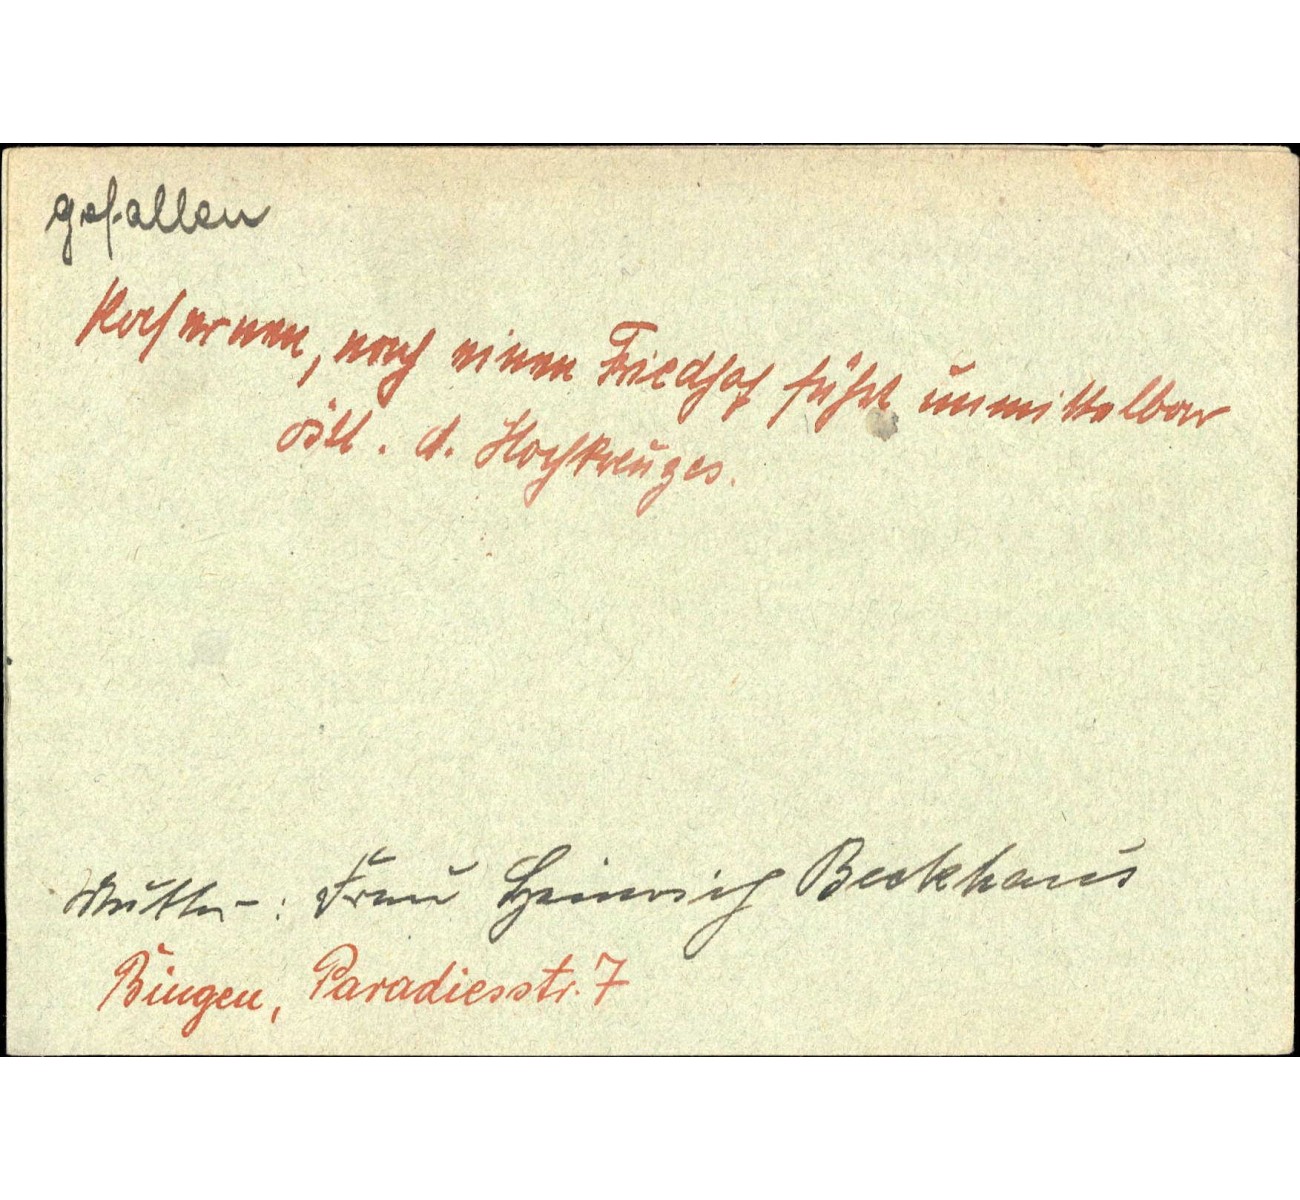 gefallen
Kasernen, nach einem Friedhof führt unmittelbar
östl. d. Hochkreuzes.
Mutter: Frau Heinrich Beckhaus
Bingen, Paradiesstr. 7